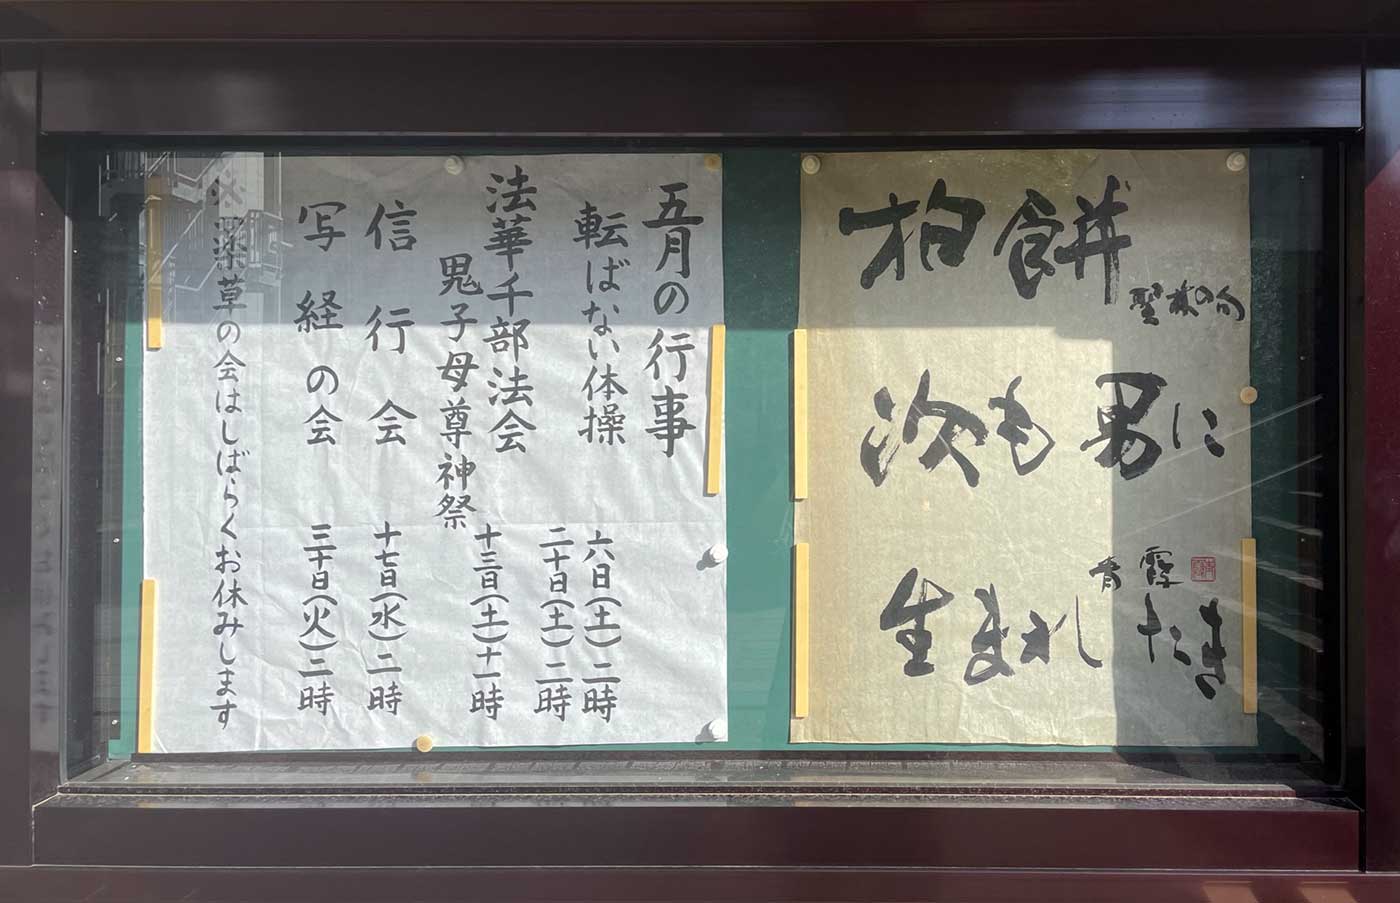 柏餅
次も男に
生まれたき
青霞
五月の行事
転ばない体操 六日(土)二時
二十日(土)二時
法華千部法会
鬼子母尊神祭 十三日(土)十一時
信行会 十七日(水)二時
写経の会 三十日(火)二時
※薬草の会はしばらくお休みします